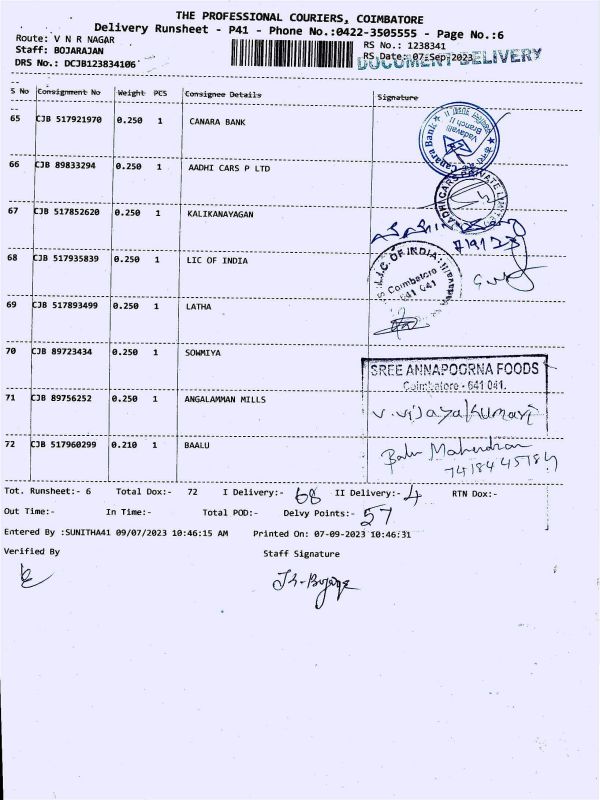 THE PROFESSIONAL COURIERS, COIMBATORE
Delivery Runsheet - P41 - Phone No.:0422-3505555 - Page No.:6
Route: V N R NAGAR
RS No.: 1238341
Staff: BOJARAJAN
RS Date: 07-Sep-2023
DOCUMENT DELIVERY
DRS No.: DCJB123834106
S No Consignment No Weight PCS Consignee Details Signature
65 CJB 517921970 0.250 1 CANARA BANK
Canara Bank
Vadavalli
Branch II
66 CJB 89833294 0.250 1 AADHI CARS P LTD
AADHI CARS PRIVATE LIMITED
67 CJB 517852620 0.250 1 KALIKANAYAGAN
68 CJB 517935839 0.250 1 LIC OF INDIA
L.I.C. OF INDIA
Coimbatore
641 041
69 CJB 517893499 0.250 1 LATHA
70 CJB 89723434 0.250 1 SOWMIYA
SREE ANNAPOORNA FOODS
Coimbatore - 641 041.
71 CJB 89756252 0.250 1 ANGALAMMAN MILLS
V. Vijayakumari
72 CJB 517960299 0.210 1 BAALU
Tot. Runsheet:- 6 Total Dox:- 72 I Delivery:- 68 II Delivery:- 4 RTN Dox:-
Out Time:- In Time:- Total POD:- Delvy Points:- 57
Entered By :SUNITHA41 09/07/2023 10:46:15 AM Printed On: 07-09-2023 10:46:31
Verified By Staff Signature